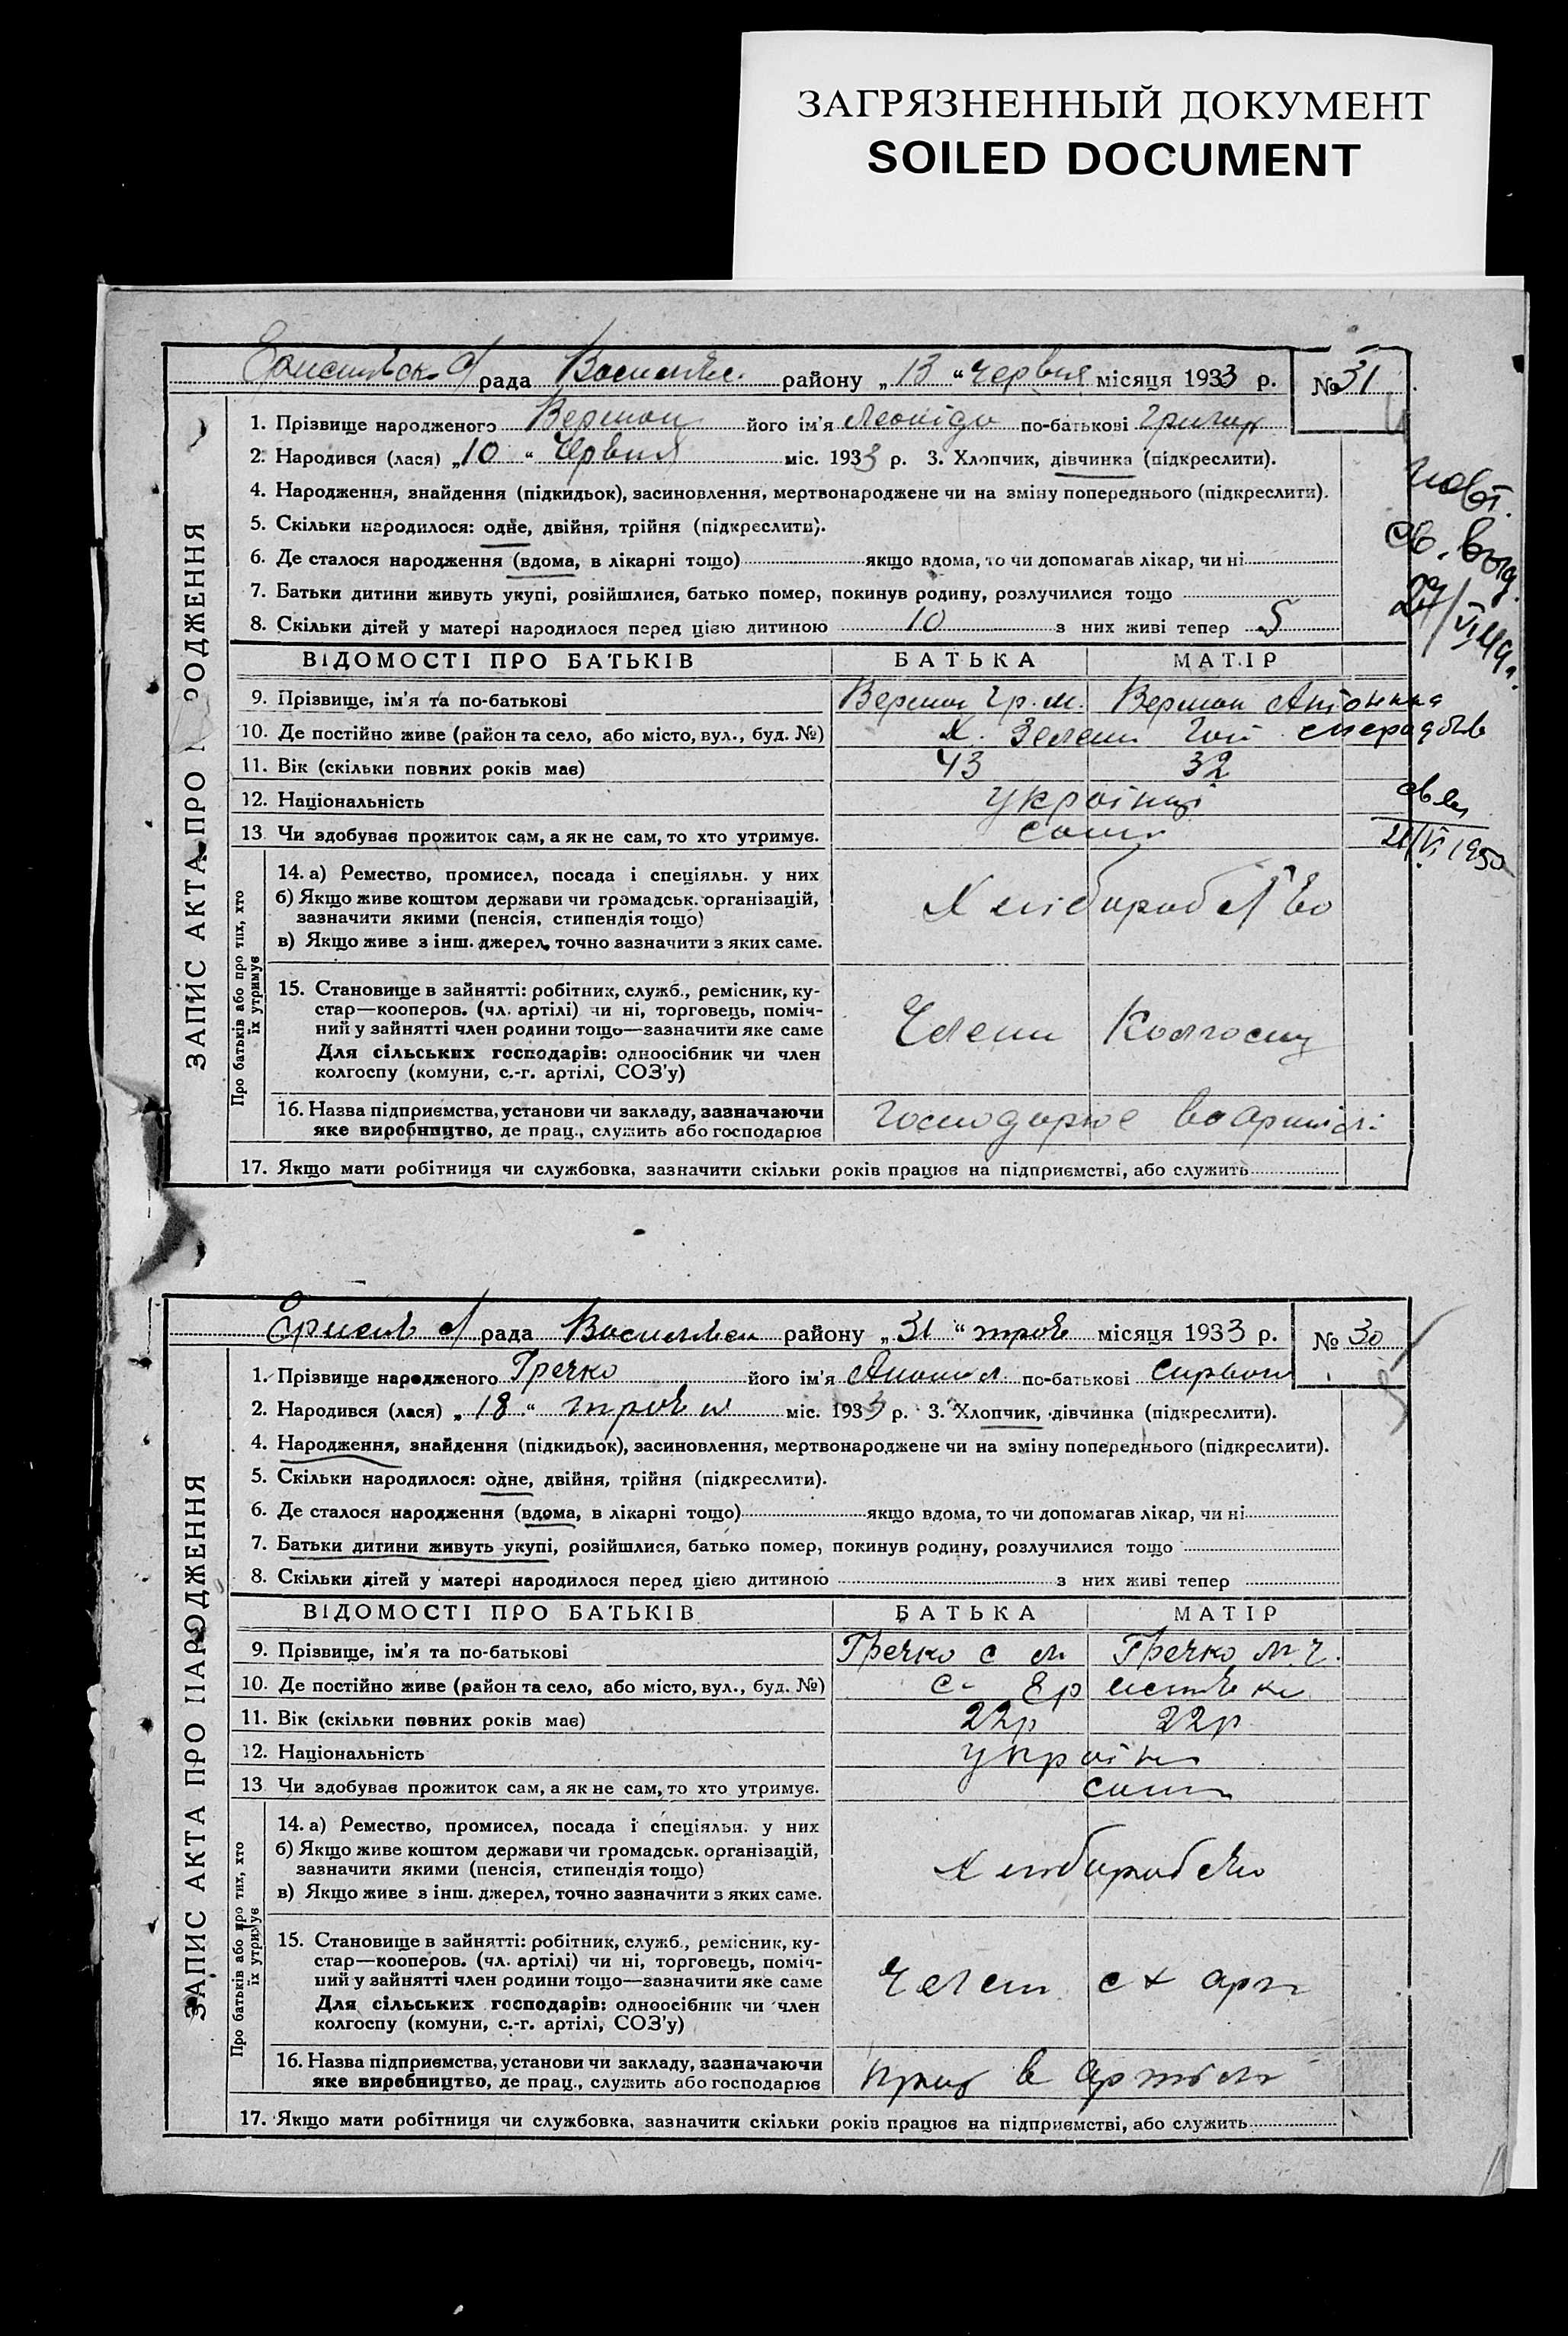 ЗАГРЯЗНЕННЫЙ ДОКУМЕНТ
SOILED DOCUMENT
рада района „13“ Червня місяця 1933 р. №31
ЗАПИС АКТА ПРО РОДЖЕННЯ
1. Прізвище народженого Вершон його ім'я Леоніда по-батькові Григор
2. Народився (лася) „10“ Червня міс. 1933 р. 3. Хлопчик, дівчинка (підкреслити).
4. Народження, знайдення (підкидьок), засиновлення, мертвонароджене чи на зміну попереднього (підкреслити).
5. Скільки народилося: одне, двійня, трійня (підкреслити).
6. Де сталося народження (вдома, в лікарні тощо) якщо вдома, то чи допомагав лікар, чи ні
7. Батьки дитини живуть укупі, розійшлися, батько помер, покинув родину, розлучилися тощо
8. Скільки дітей у матері народилося перед цією дитиною 10 з них живі тепер 5
ВІДОМОСТІ ПРО БАТЬКІВ БАТЬКА МАТІР
9. Прізвище, ім'я та по-батькові Вершон Гр. М. Вершон Антонина
10. Де постійно живе (район та село, або місто, вул., буд. №) Х. Зелени Гай
11. Вік (скільки повних років має) 43 32
12. Національність українці
13. Чи здобував прожиток сам, а як не сам, то хто утримує. сами
Про батьків або про тих, хто їх утримує
14. а) Ремество, промисел, посада і спеціяльн. у них
б) Якщо живе коштом держави чи громадськ. організацій,
зазначити якими (пенсія, стипендія тощо)
в) Якщо живе з інш. джерел, точно зазначити з яких саме.
15. Становище в зайнятті: робітник, служб., ремісник, ку-
стар—кооперов. (чл. артілі) чи ні, торговець, поміч-
ний у зайнятті член родини тощо—зазначити яке саме
Для сільських господарів: одноосібник чи член
колгоспу (комуни, с.-г. артілі, СОЗ'у)
Члени Колгоспу
16. Назва підприємства, установи чи закладу, зазначаючи
яке виробництво, де прац., служить або господарює
господарює
17. Якщо мати робітниця чи службовка, зазначити скільки років працює на підприємстві, або служить
21/VI 1950
рада району „31“ трав місяця 1933 р. № 30
ЗАПИС АКТА ПРО НАРОДЖЕННЯ
1. Прізвище народженого Гречко його ім'я Анатол по-батькові
2. Народився (лася) „18“ травня міс. 1933 р. 3. Хлопчик, дівчинка (підкреслити).
4. Народження, знайдення (підкидьок), засиновлення, мертвонароджене чи на зміну попереднього (підкреслити).
5. Скільки народилося: одне, двійня, трійня (підкреслити).
6. Де сталося народження (вдома, в лікарні тощо) якщо вдома, то чи допомагав лікар, чи ні
7. Батьки дитини живуть укупі, розійшлися, батько помер, покинув родину, розлучилися тощо
8. Скільки дітей у матері народилося перед цією дитиною з них живі тепер
ВІДОМОСТІ ПРО БАТЬКІВ БАТЬКА МАТІР
9. Прізвище, ім'я та по-батькові Гречко С М Гречко М. Г.
10. Де постійно живе (район та село, або місто, вул., буд. №) с. Еристівка
11. Вік (скільки повних років має) 22р 22р
12. Національність україн
13. Чи здобував прожиток сам, а як не сам, то хто утримує. сами
Про батьків або про тих, хто їх утримує
14. а) Ремество, промисел, посада і спеціяльн. у них
б) Якщо живе коштом держави чи громадськ. організацій,
зазначити якими (пенсія, стипендія тощо)
в) Якщо живе з інш. джерел, точно зазначити з яких саме.
15. Становище в зайнятті: робітник, служб., ремісник, ку-
стар—кооперов. (чл. артілі) чи ні, торговець, поміч-
ний у зайнятті член родини тощо—зазначити яке саме
Для сільських господарів: одноосібник чи член
колгоспу (комуни, с.-г. артілі, СОЗ'у)
Члени с х арт
16. Назва підприємства, установи чи закладу, зазначаючи
яке виробництво, де прац., служить або господарює
прац в артілі
17. Якщо мати робітниця чи службовка, зазначити скільки років працює на підприємстві, або служить